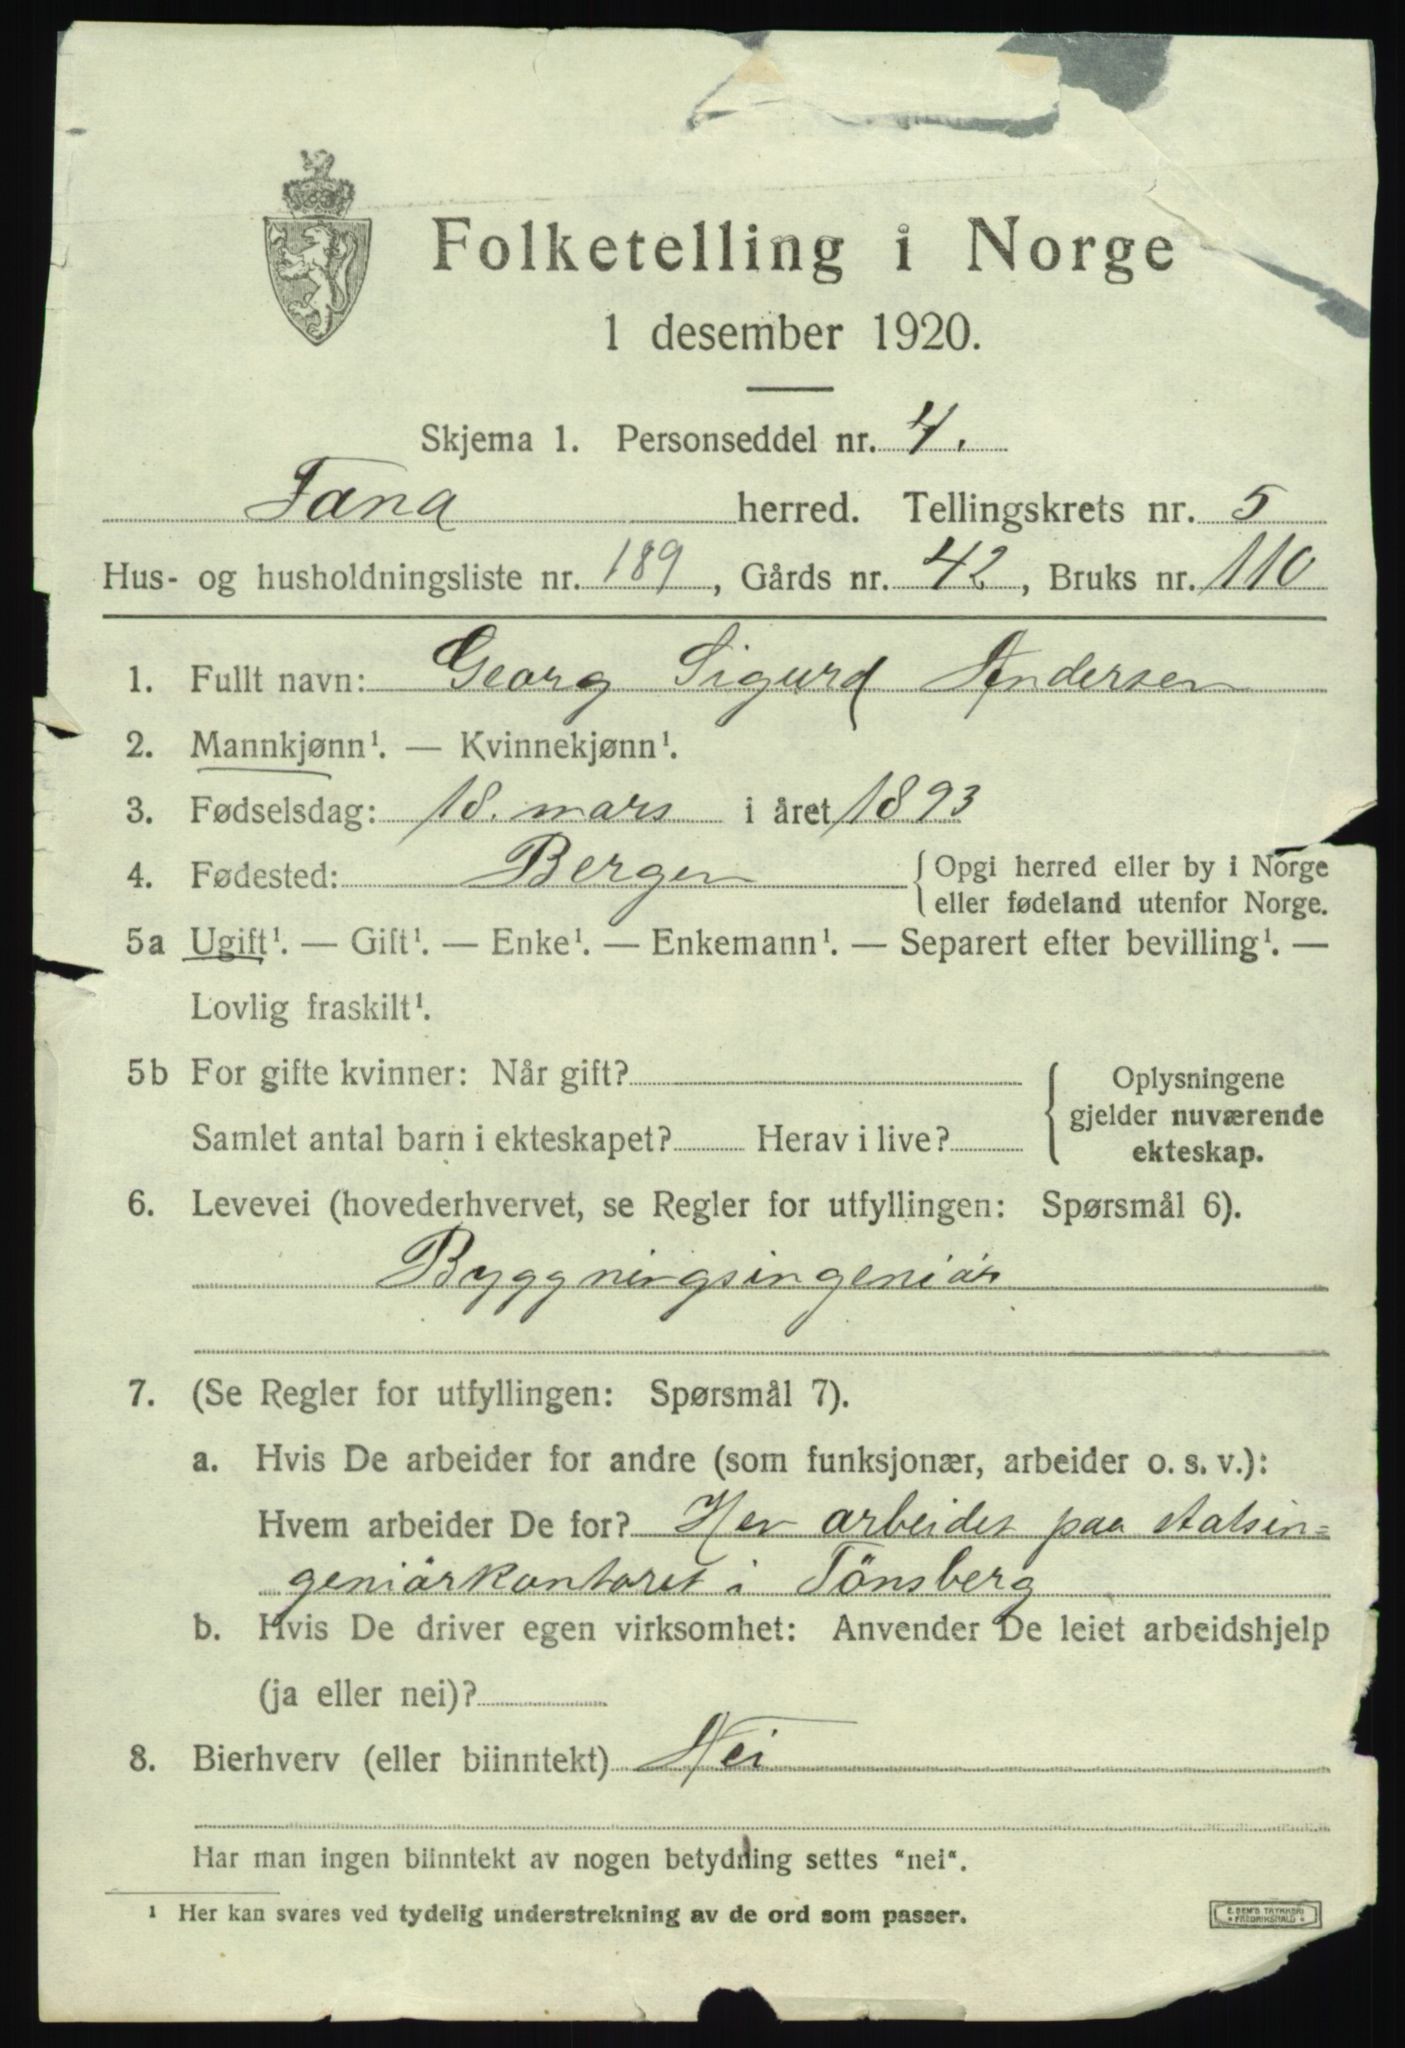 Folketelling i Norge
1 desember 1920.
Skjema 1. Personseddel nr. 4.
Fana herred. Tellingskrets nr. 5
Hus- og husholdningsliste nr. 189, Gårds nr. 42, Bruks nr. 110
1. Fullt navn: Georg Sigurd Andersen
2. Mannkjønn¹. — Kvinnekjønn¹.
3. Fødselsdag: 18. mars i året 1893
4. Fødested: Bergen {Opgi herred eller by i Norge
eller fødeland utenfor Norge.
5a Ugift¹. — Gift¹. — Enke¹. — Enkemann¹. — Separert efter bevilling¹. —
Lovlig fraskilt¹.
5b For gifte kvinner: Når gift?
Samlet antal barn i ekteskapet? Herav i live?
Oplysningene
gjelder nuværende
ekteskap.
6. Levevei (hovederhvervet, se Regler for utfyllingen: Spørsmål 6).
Byggningsingeniör
7. (Se Regler for utfyllingen: Spørsmål 7).
a. Hvis De arbeider for andre (som funksjonær, arbeider o. s. v.):
Hvem arbeider De for? Har arbeidet paa statsin=
geniörkontoret i Tönsberg
b. Hvis De driver egen virksomhet: Anvender De leiet arbeidshjelp
(ja eller nei)?
8. Bierhverv (eller biinntekt) Nei
Har man ingen biinntekt av nogen betydning settes "nei".
¹ Her kan svares ved tydelig understrekning av de ord som passer.
E. SEM'S TRYKKERI
* FREDRIKSHALD *